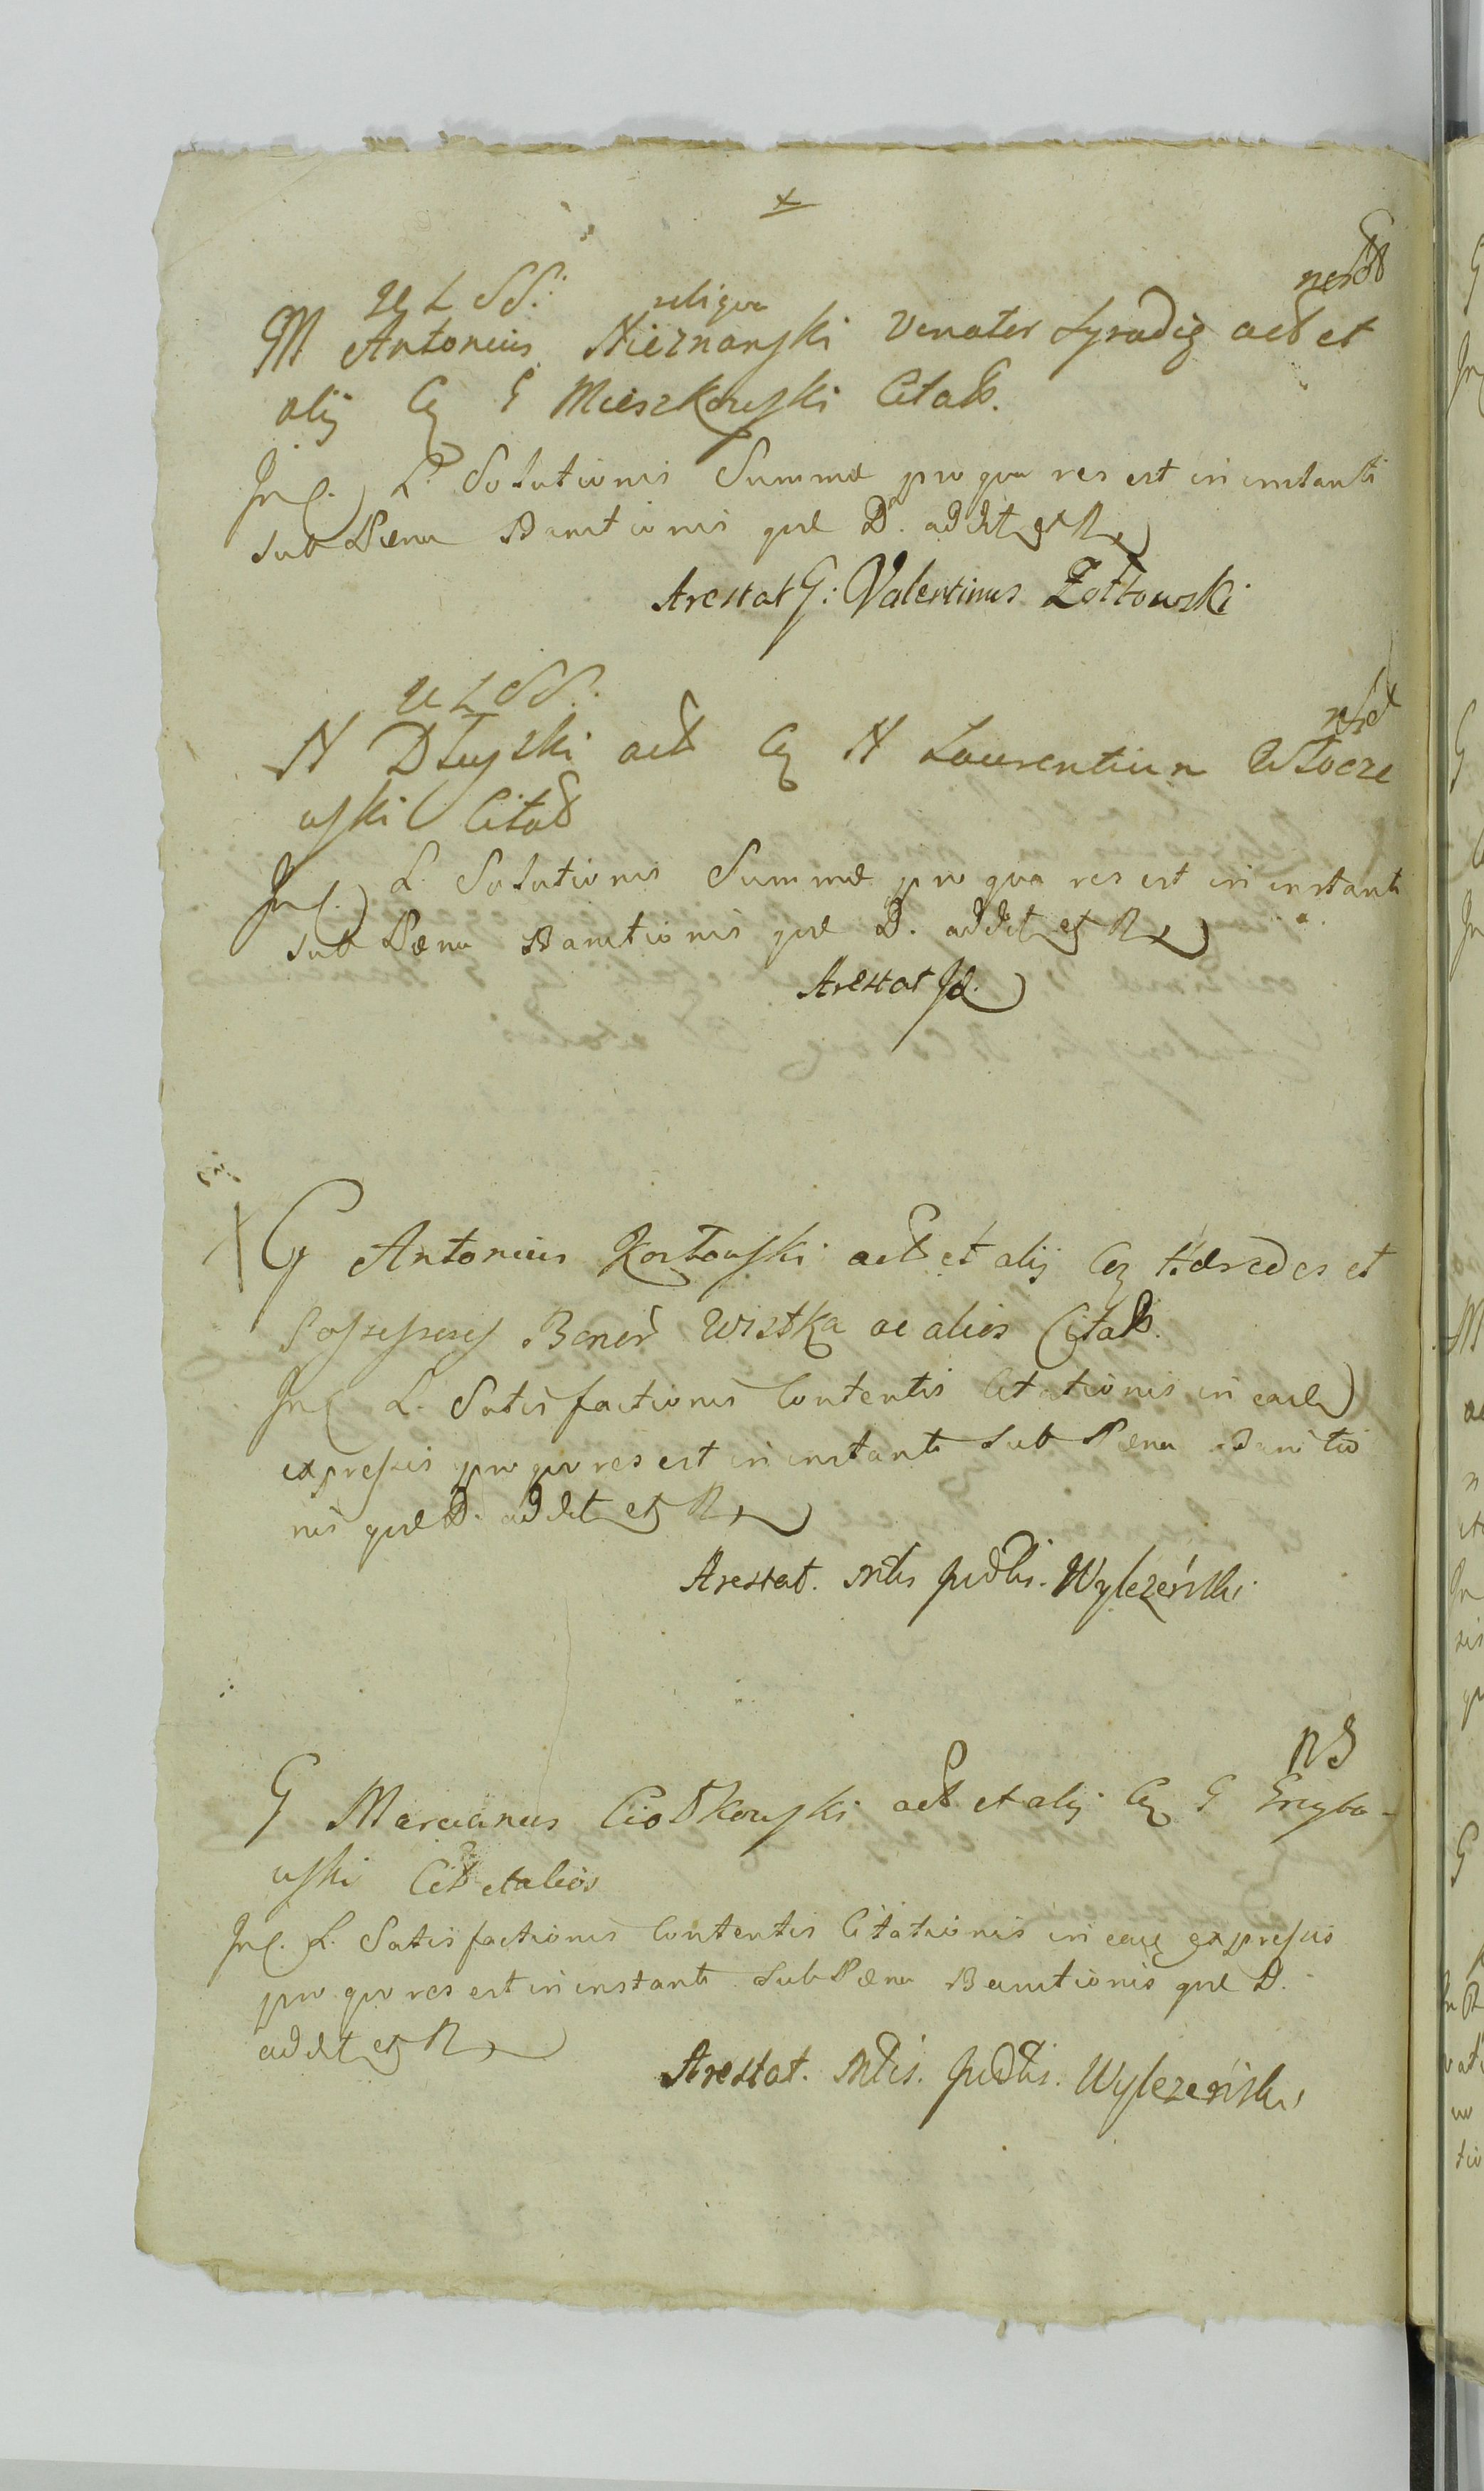 x
U L SS. reliqua
M Antonius Nieznanski Venator Syradię act et
alij Cq G Mieszkowski Citat.
In C. L. Solutionis Summæ pro qua res est in instanti
sub Pæna Banitionis quæ D. addit et R
Arestat G: Valentinus Żołtowski
U L SS.
N Dłuski act Cq N Laurentium Włocze
wski Citat
In C. L. Solutionis Summæ pro qua res est in instanti
sub Pæna Banitionis quæ D. addit et R
Arestat Id.
G Antonius Kozłowski act et alij Cq Hæredes et
Possessores Bonor Wistka ac alios Citat.
In C L. Satisfactionis Contentis Citationis in eaq
expressis pro quo res est in instanti sub Pæna Banitio
nis quæ D. addit et R
Arestat. Mtis Judlis. Wylezeński
NS
G Marcianus Ciołkowski act et alij Cq G Grzybo-
wski Cit et alios
In C. L. Satisfactionis Contentis Citationis in eaq expressis
pro quo res est in instanti sub Pæna Banitionis quæ D.
addit et R
Arestat. Mtis. Judlis. Wylezeński